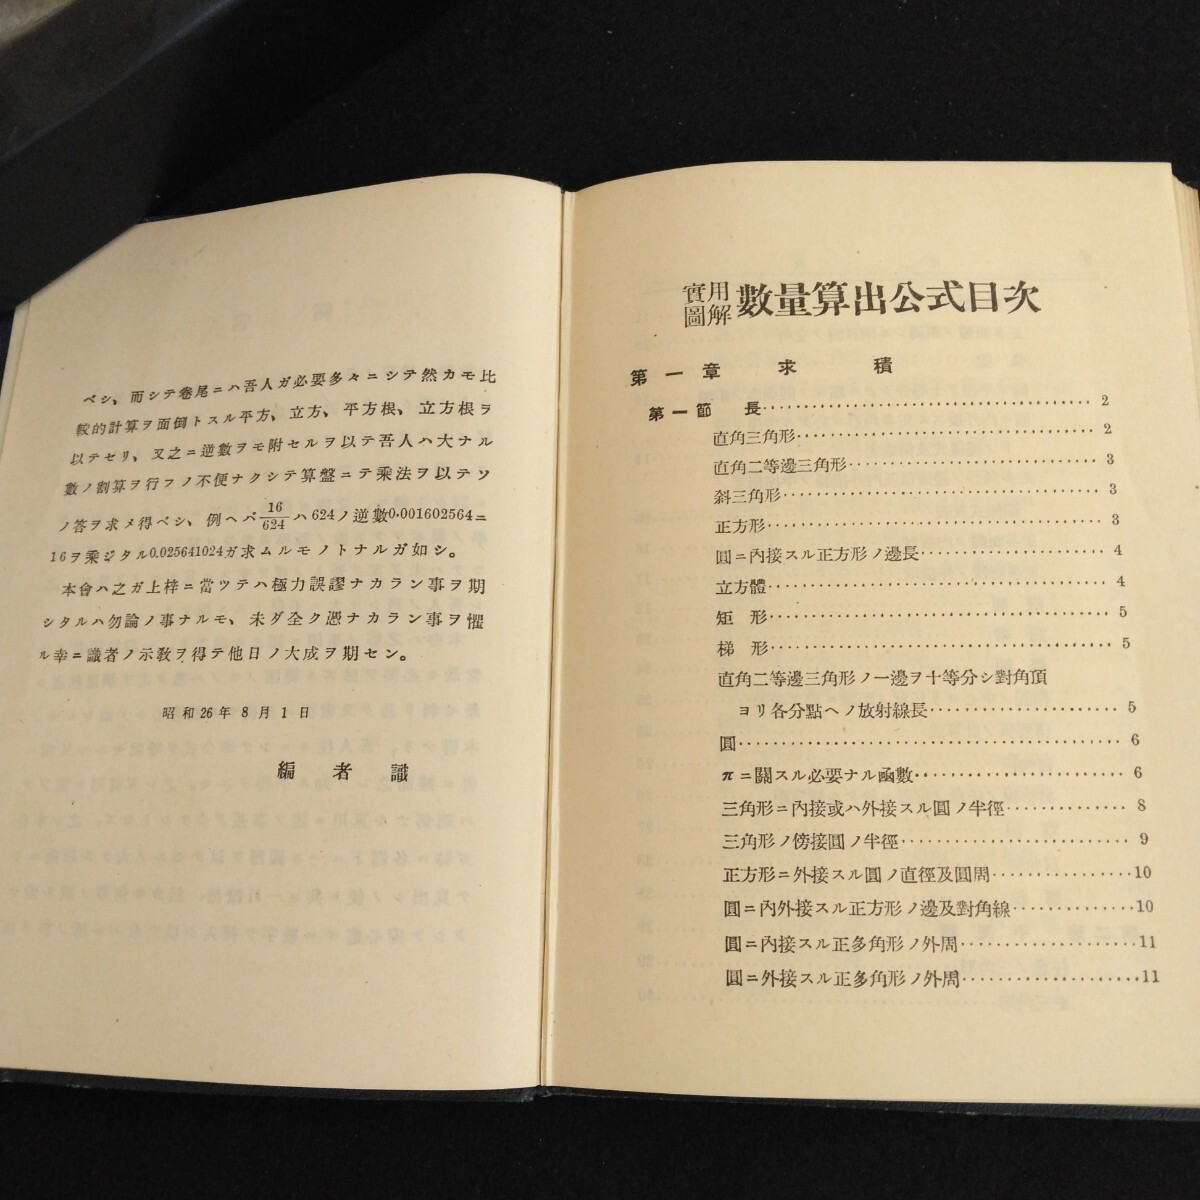 ベシ、而シテ卷尾ニハ吾人ガ必要多々ニシテ然カモ比
較的計算ヲ面倒トスル平方、立方、平方根、立方根ヲ
以テセリ、又之ニ逆數ヲモ附セルヲ以テ吾人ハ大ナル
數ノ割算ヲ行フノ不便ナクシテ算盤ニテ乘法ヲ以テソ
ノ答ヲ求メ得ベシ、例ヘバ16/624ハ624ノ逆數0.001602564ニ
16ヲ乘ジタル0.025641024ガ求ムルモノトナルガ如シ。
本會ハ之ガ上梓ニ當ツテハ極力誤謬ナカラン事ヲ期
シタルハ勿論ノ事ナルモ、未ダ全ク憑ナカラン事ヲ懼
ル幸ニ識者ノ示敎ヲ得テ他日ノ大成ヲ期セン。
昭和26年8月1日
編者識
實用圖解 數量算出公式目次
第一章 求積
第一節 長 2
直角三角形 2
直角二等邊三角形 3
斜三角形 3
正方形 3
圓ニ內接スル正方形ノ邊長 4
立方體 4
矩形 5
梯形 5
直角二等邊三角形ノ一邊ヲ十等分シ對角頂
ヨリ各分點ヘノ放射線長 5
圓 6
πニ關スル必要ナル函數 6
三角形ニ內接或ハ外接スル圓ノ半徑 8
三角形ノ傍接圓ノ半徑 9
正方形ニ外接スル圓ノ直徑及圓周 10
圓ニ內外接スル正方形ノ邊及對角線 10
圓ニ內接スル正多角形ノ外周 11
圓ニ外接スル正多角形ノ外周 11